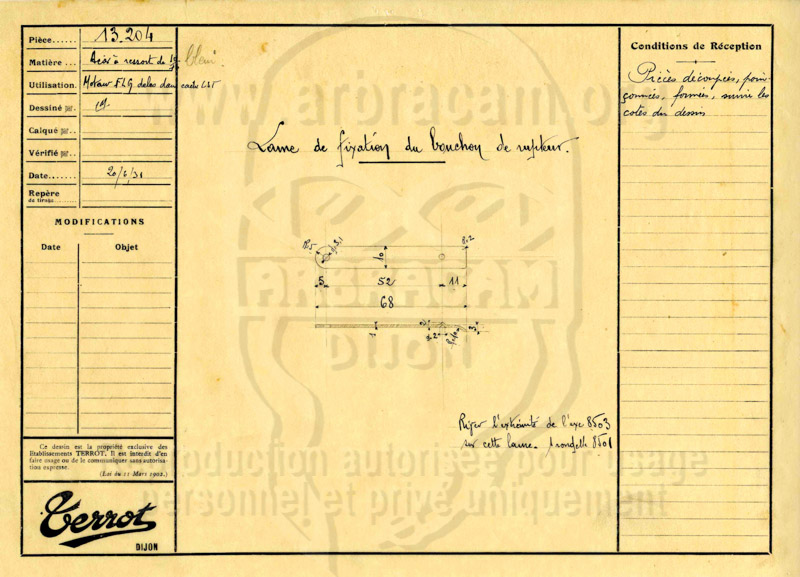 Pièce...... 13.204
Matière ... Acier à ressort de
Utilisation. Moteur FLG delco dans
Dessiné par.
Calqué par.
Vérifié par..
Date....... 20/6/31
Repère
de tirage
MODIFICATIONS
Date Objet
Ce dessin est la propriété exclusive des
Etablissements TERROT. Il est interdit d'en
faire usage ou de le communiquer sans autorisa-
tion expresse.
(Loi du 11 Mars 1902.)
Terrot
DIJON
Lame de fixation du bouchon de rupteur.
R.5
10
5
52
11
68
1
3
River l'extrémité de l'axe 8503
sur cette lame. 8501
Conditions de Réception
Pièces découpées, poin-
çonnées, formées, suivi les
cotes du dessin
www.arbracam.org
ARBRACAM
DIJON
Reproduction autorisée pour usage
personnel et privé uniquement